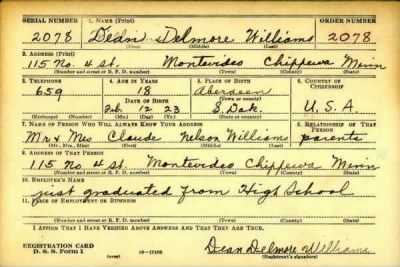 SERIAL NUMBER 1. NAME (Print) ORDER NUMBER
2078 Dean Delmore Williams 2078
(First) (Middle) (Last)
2. ADDRESS (Print)
115 No. 4 St. Montevideo Chippewa Minn
(Number and street or R. F. D. number) (Town) (County) (State)
3. TELEPHONE 4. AGE IN YEARS 5. PLACE OF BIRTH 6. COUNTRY OF CITIZENSHIP
659 18 Aberdeen
DATE OF BIRTH (Town or county)
Feb. 12 23 S. Dak. U. S. A.
(Exchange) (Number) (Mo.) (Day) (Yr.) (State or country)
7. NAME OF PERSON WHO WILL ALWAYS KNOW YOUR ADDRESS 8. RELATIONSHIP OF THAT PERSON
Mr & Mrs Claude Nelson Williams parents
(Mr., Mrs., Miss) (First) (Middle) (Last)
9. ADDRESS OF THAT PERSON
115 No. 4 St. Montevideo Chippewa Minn
(Number and street or R. F. D. number) (Town) (County) (State)
10. EMPLOYER'S NAME
just graduated from High School
11. PLACE OF EMPLOYMENT OR BUSINESS
(Number and street or R. F. D. number) (Town) (County) (State)
I AFFIRM THAT I HAVE VERIFIED ABOVE ANSWERS AND THAT THEY ARE TRUE.
REGISTRATION CARD
D. S. S. Form 1 (over) 16—17105 Dean Delmore Williams
(Registrant's signature)